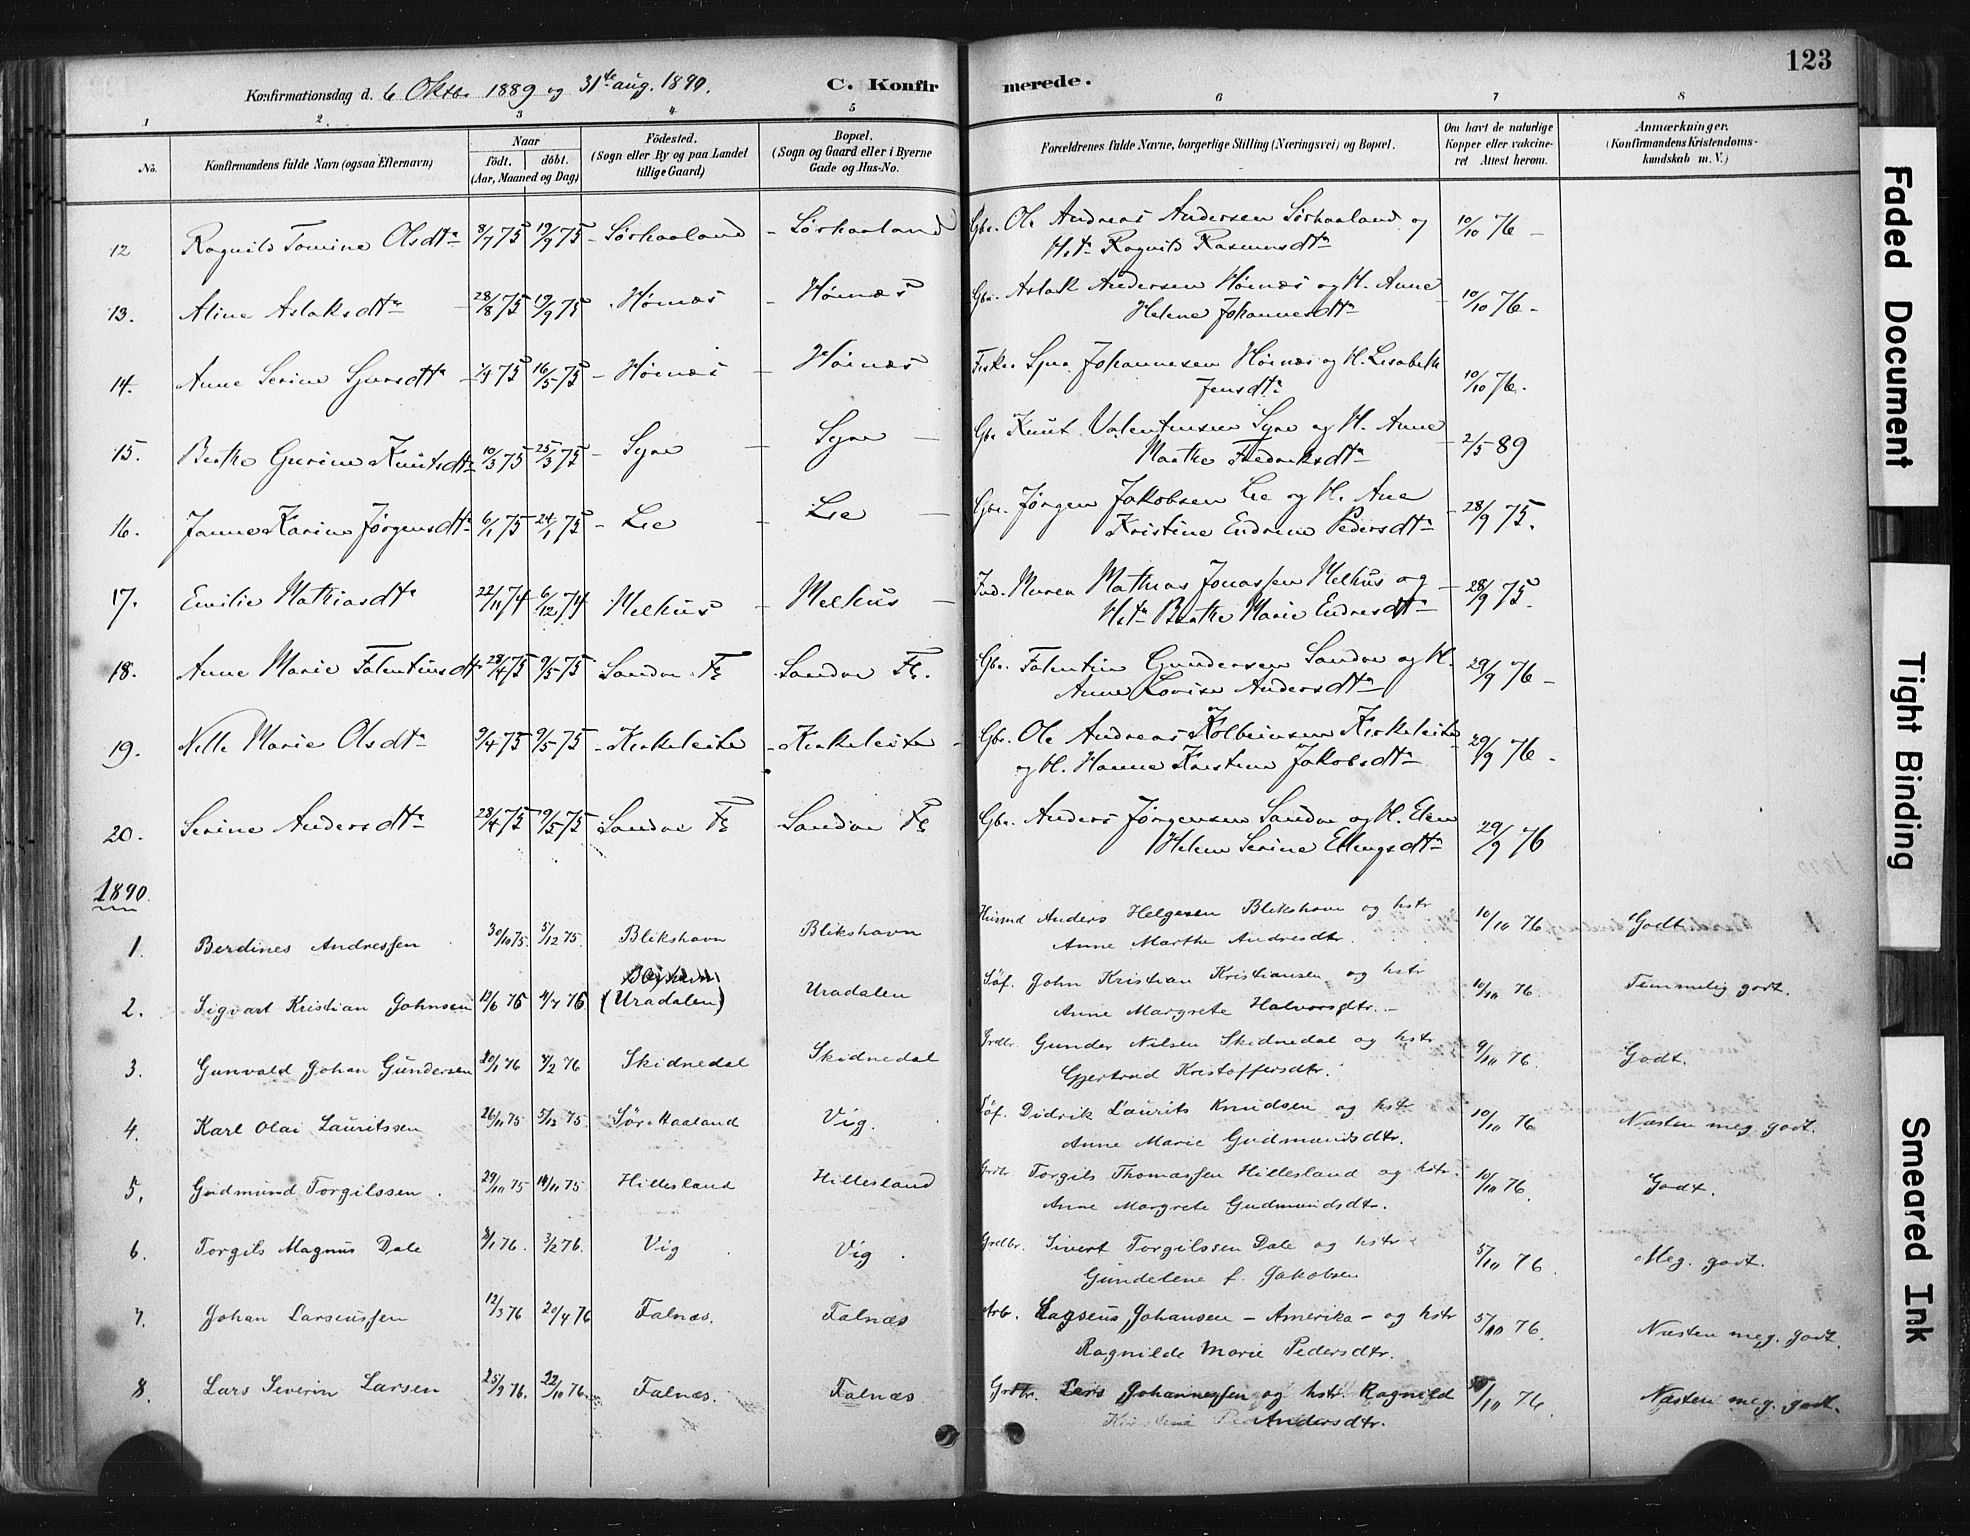 123
Konfirmationsdag d. 6 Oktbr 1889 og 31te aug. 1890. C. Konfirmerede.
1 2. 3 4 5 6 7 8
No. Konfirmandens fulde Navn (ogsaa Efternavn) Naar født. døbt. (Aar, Maaned og Dag) Fødested. (Sogn eller By og paa Landet tillige Gaard) Bopæl. (Sogn og Gaard eller i Byerne Gade og Hus-No. Forældrenes fulde Navne, borgerlige Stilling (Næringsvei) og Bopæl. Om havt de naturlige Kopper eller vakcineret Attest herom. Anmærkninger. (Konfirmandens Kristendomskundskab m. V.)
12 Ragnild Tomine Olsdtr 8/7 75 19/9 75 Sørhaaland Sørhaaland Gbr. Ole Andreas Andersen Sørhaaland og 10/10 76
H.t. Ragnild Rasmusdtr
13. Aline Aslaksdtr 28/8 75 19/9 75 Høinæs Høinæs Gbr. Aslak Andersen Høinæs og H. Anne 10/10 76
Helene Johannesdtr
14. Anne Serine Sjursdtr 75 16/5 75 Høinæs Høinæs Fisker Sjur Johannesen Høinæs og H. Lisabeth 10/10 76.
Jensdtr
15. Berthe Gurine Knutsdtr 10/3 75 25/3 75 Syre Syre Gbr Knut Valentinsen Syre og H. Anne 2/5 89
Marthe Fredriksdtr
16. Janne Karine Jørgensdtr 6/1 75 24/1 75 Lie Lie Gbr. Jørgen Jakobsen Lie og H. Ane 28/9 75.
Kristine Endrine Pedersdtr
17. Emilie Mathiasdtr 22/11 74 6/12 74 Melhus Melhus Ind. Murer Mathias Jonassen Melhus og 28/9 75.
H.t. Berthe Marie Endresdtr
18. Anne Marie Falentinsdtr 28/4 75 9/5 75 Sandve Fr Sandve Fr. Gbr. Falentin Gundersen Sandve og H. 29/9 76
Anne Lovise Andersdtr
19. Nelle Marie Olsdtr 9/4 75 9/5 75 Kirkeleite Kirkeleite Gbr. Ole Andreas Kolbeinsen Kirkeleite 29/9 76.
og H. Hanne Kristine Jakobsdtr
20. Serine Andersdtr 28/4 75 9/5 75 Sandve Fr Sandve Fr Gbr. Anders Jørgensen Sandve og H. Elen 29/9 76
Helene Serine Ellingsdtr
1890.
1. Berdines Andressen 30/10 75. 5/12 75. Blikshavn Blikshavn Husmd Anders Helgesen Blikshavn og hstr 10/10 76 Godt.
Anne Marthe Andresdtr.
2. Sigvart Kristian Johnsen 12/6 76 4/7 76 (Uradalen) Uradalen Søf. John Kristian Kristiansen og hstr 10/10 76. Temmelig godt.
Anne Margrete Halvorsdtr.
3. Gunvald Johan Gundersen 20/1 76 7/2 76 Skidnedal Skidnedal Grdbr. Gunder Nilsen Skidnedal og hstr 9/10 76. Godt.
Gjertrud Kristoffersdtr.
4. Karl Olai Lauritssen 26/11 75 5/12 75. Sør. Haaland Vig. Søf. Didrik Laurits Knudsen og hst 10/10 76 Næsten meg. godt.
Anne Marie Gudmundsdtr.
5. Gudmund Torgilssen. 29/10 75 14/11 75 Hillesland Hillesland Grdbr. Torgils Thomassen Hillesland og hstr. 10/10 76. Godt.
Anne Margrete Gudmundsdtr.
6 Torgils Magnus Dale 8/1 76. 3/2 76. Vig Vig. Grdbr. Sivert Torgilssen Dale og hstr 5/10 76. Meg. godt.
Gundelene f. Jakobsen
7. Johan Larseussen 12/3 76 20/4 76 Falnæs. Falnæs Arb. Larseus Johansen – Amerika – og hstr 5/10 76. Næsten meg. godt.
Ragnilde Marie Pedersdtr.
8. Lars Severin Larsen 25/9 76. 22/10 76. Falnæs. Falnæs Grdbr. Lars Johannessen og hstr. Ragnild /10 76. Næsten meg. godt.
Andersdtr.
Faded Document
Tight Binding
Smeared Ink